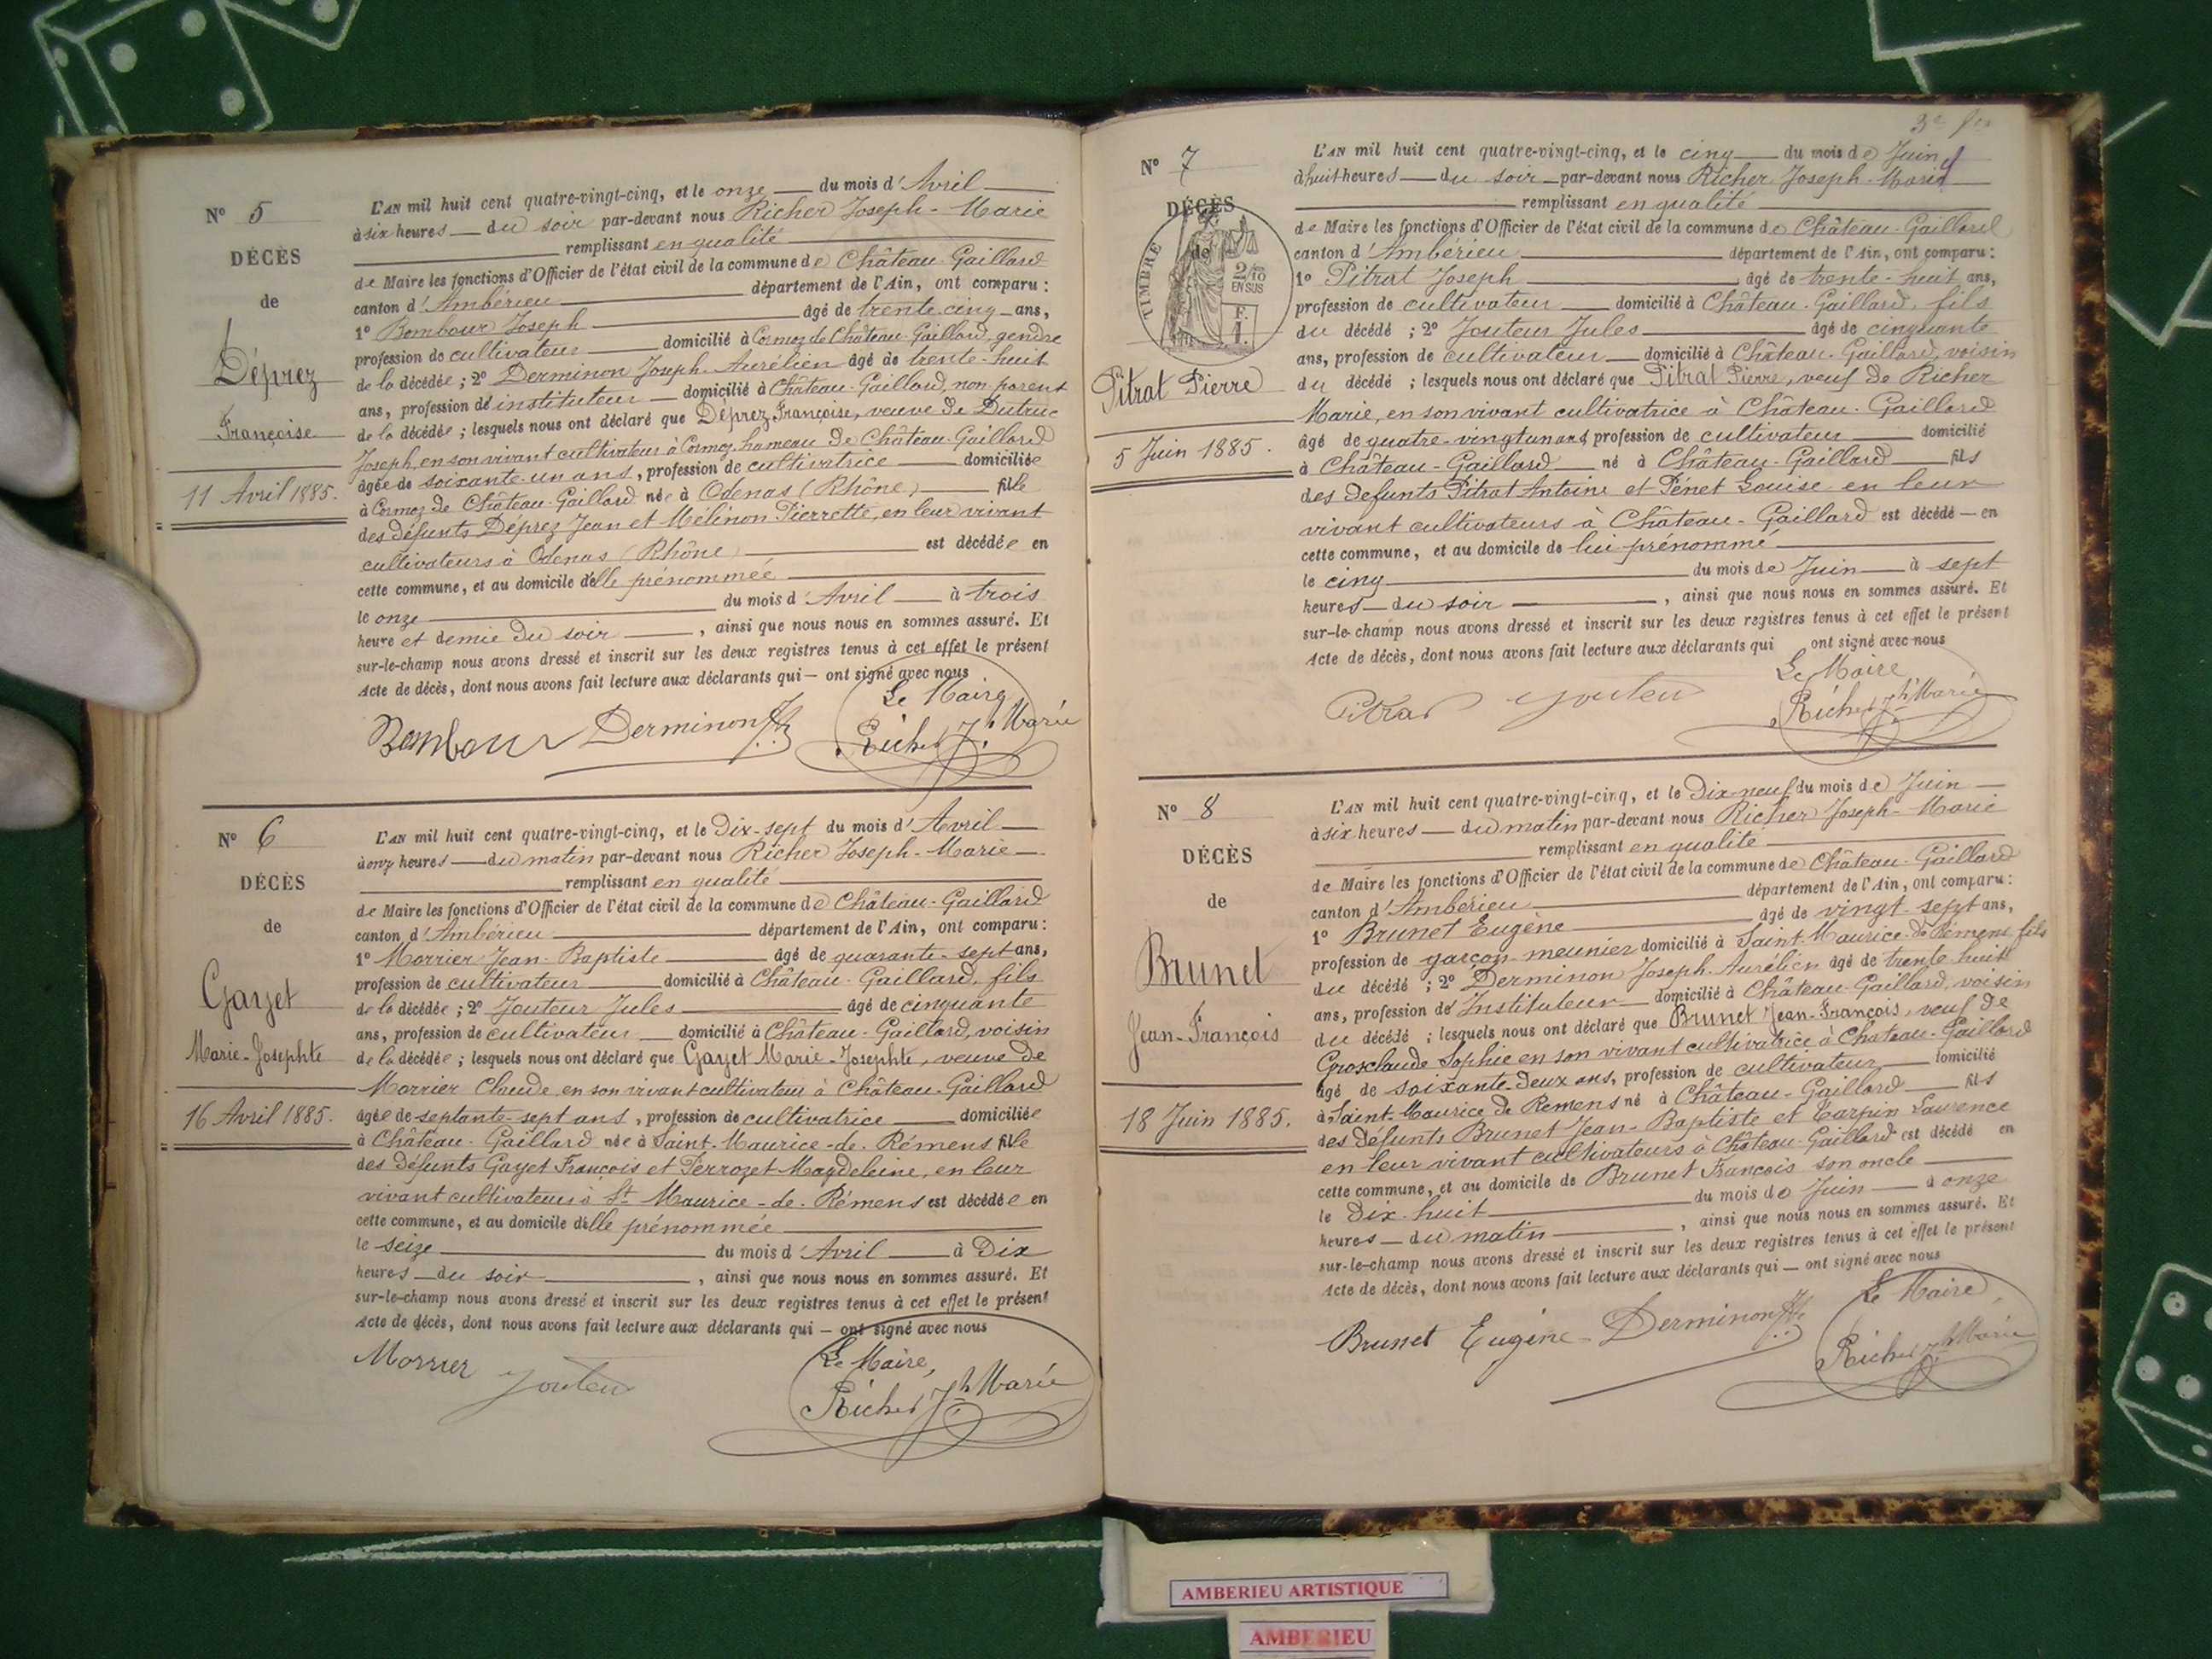 N° 5
DÉCÈS
de
Déprez
Françoise
11 Avril 1885.
L'AN mil huit cent quatre-vingt-cinq, et le onze du mois d'Avril
à six heures du soir par-devant nous Richer Joseph-Marie
remplissant en qualité
de Maire les fonctions d'Officier de l'état civil de la commune de Château-Gaillard
canton d'Ambérieu département de l'Ain, ont comparu :
1° Bombour Joseph âgé de trente-cinq ans,
profession de cultivateur domicilié à Cormoz de Château-Gaillard, gendre
de la décédée ; 2° Derminon Joseph-Aurélien âgé de trente-huit
ans, profession d'instituteur domicilié à Château-Gaillard, non parent
de la décédée ; lesquels nous ont déclaré que Déprez Françoise, veuve de Dutruc
Joseph, en son vivant cultivateur à Cormoz, hameau de Château-Gaillard
âgée de soixante-un ans, profession de cultivatrice domiciliée
à Cormoz de Château-Gaillard née à Odenas (Rhône) fille
des défunts Déprez Jean et Mélinon Pierrette, en leur vivant
cultivateurs à Odenas (Rhône) est décédée en
cette commune, et au domicile d'elle prénommée
le onze du mois d'Avril à trois
heure et demie du soir , ainsi que nous nous en sommes assuré. Et
sur-le-champ nous avons dressé et inscrit sur les deux registres tenus à cet effet le présent
Acte de décès, dont nous avons fait lecture aux déclarants qui — ont signé avec nous
Le Maire
Bombour Derminon Richer Jh Marie
N° 6
DÉCÈS
de
Gayet
Marie-Josephte
16 Avril 1885.
L'AN mil huit cent quatre-vingt-cinq, et le Dix-sept du mois d'Avril
à onze heures du matin par-devant nous Richer Joseph-Marie
remplissant en qualité
de Maire les fonctions d'Officier de l'état civil de la commune de Château-Gaillard
canton d'Ambérieu département de l'Ain, ont comparu :
1° Morrier Jean-Baptiste âgé de quarante-sept ans,
profession de cultivateur domicilié à Château-Gaillard, fils
de la décédée ; 2° Jouteur Jules âgé de cinquante
ans, profession de cultivateur domicilié à Château-Gaillard, voisin
de la décédée ; lesquels nous ont déclaré que Gayet Marie-Josephte, veuve de
Morrier Claude, en son vivant cultivateur à Château-Gaillard
âgée de septante-sept ans, profession de cultivatrice domiciliée
à Château-Gaillard née à Saint-Maurice-de-Rémens fille
des Défunts Gayet François et Perrozet Magdeleine, en leur
vivant cultivateurs à St Maurice-de-Rémens est décédée en
cette commune, et au domicile d'elle prénommée
le seize du mois d'Avril à Dix
heures du soir , ainsi que nous nous en sommes assuré. Et
sur-le-champ nous avons dressé et inscrit sur les deux registres tenus à cet effet le présent
Acte de décès, dont nous avons fait lecture aux déclarants qui — ont signé avec nous
Le Maire,
Morrier Jouteur Richer Jh Marie
3e
N° 7
DÉCÈS
de
TIMBRE
2/10 EN SUS
F.
1.
Pitrat Pierre
5 Juin 1885.
L'AN mil huit cent quatre-vingt-cinq, et le cinq du mois de Juin
à huit heures du soir par-devant nous Richer Joseph-Marie
remplissant en qualité
de Maire les fonctions d'Officier de l'état civil de la commune de Château-Gaillard
canton d'Ambérieu département de l'Ain, ont comparu :
1° Pitrat Joseph âgé de trente-huit ans,
profession de cultivateur domicilié à Château-Gaillard, fils
du décédé ; 2° Jouteur Jules âgé de cinquante
ans, profession de cultivateur domicilié à Château-Gaillard, voisin
du décédé ; lesquels nous ont déclaré que Pitrat Pierre, veuf de Richer
Marie, en son vivant cultivatrice à Château-Gaillard
âgé de quatre-vingt un ans, profession de cultivateur domicilié
à Château-Gaillard né à Château-Gaillard fils
des défunts Pitrat Antoine et Pénet Louise en leur
vivant cultivateurs à Château-Gaillard est décédé — en
cette commune, et au domicile de lui prénommé
le cinq du mois de Juin à sept
heures du soir , ainsi que nous nous en sommes assuré. Et
sur-le-champ nous avons dressé et inscrit sur les deux registres tenus à cet effet le présent
Acte de décès, dont nous avons fait lecture aux déclarants qui ont signé avec nous
Le Maire
Pitrat Jouteur Richer Jh Marie
N° 8
DÉCÈS
de
Brunet
Jean-François
18 Juin 1885.
L'AN mil huit cent quatre-vingt-cinq, et le Dix-neuf du mois de Juin
à six heures du matin par-devant nous Richer Joseph-Marie
remplissant en qualité
de Maire les fonctions d'Officier de l'état civil de la commune de Château-Gaillard
canton d'Ambérieu département de l'Ain, ont comparu :
1° Brunet Eugène âgé de vingt-sept ans,
profession de garçon meunier domicilié à Saint-Maurice-de-Rémens, fils
du décédé ; 2° Derminon Joseph-Aurélien âgé de trente-huit
ans, profession d'Instituteur domicilié à Château-Gaillard, voisin
du décédé ; lesquels nous ont déclaré que Brunet Jean-François, veuf de
Grosclaude Sophie en son vivant cultivatrice à Château-Gaillard
âgé de soixante-deux ans, profession de cultivateur domicilié
à Saint-Maurice de Remens né à Château-Gaillard fils
des Défunts Brunet Jean-Baptiste et Carpin Laurence
en leur vivant cultivateurs à Château-Gaillard est décédé en
cette commune, et au domicile de Brunet François son oncle
le Dix-huit du mois de Juin à onze
heures du matin , ainsi que nous nous en sommes assuré. Et
sur-le-champ nous avons dressé et inscrit sur les deux registres tenus à cet effet le présent
Acte de décès, dont nous avons fait lecture aux déclarants qui — ont signé avec nous
Le Maire,
Brunet Eugène Derminon Richer Jh Marie
AMBERIEU ARTISTIQUE
AMBERIEU